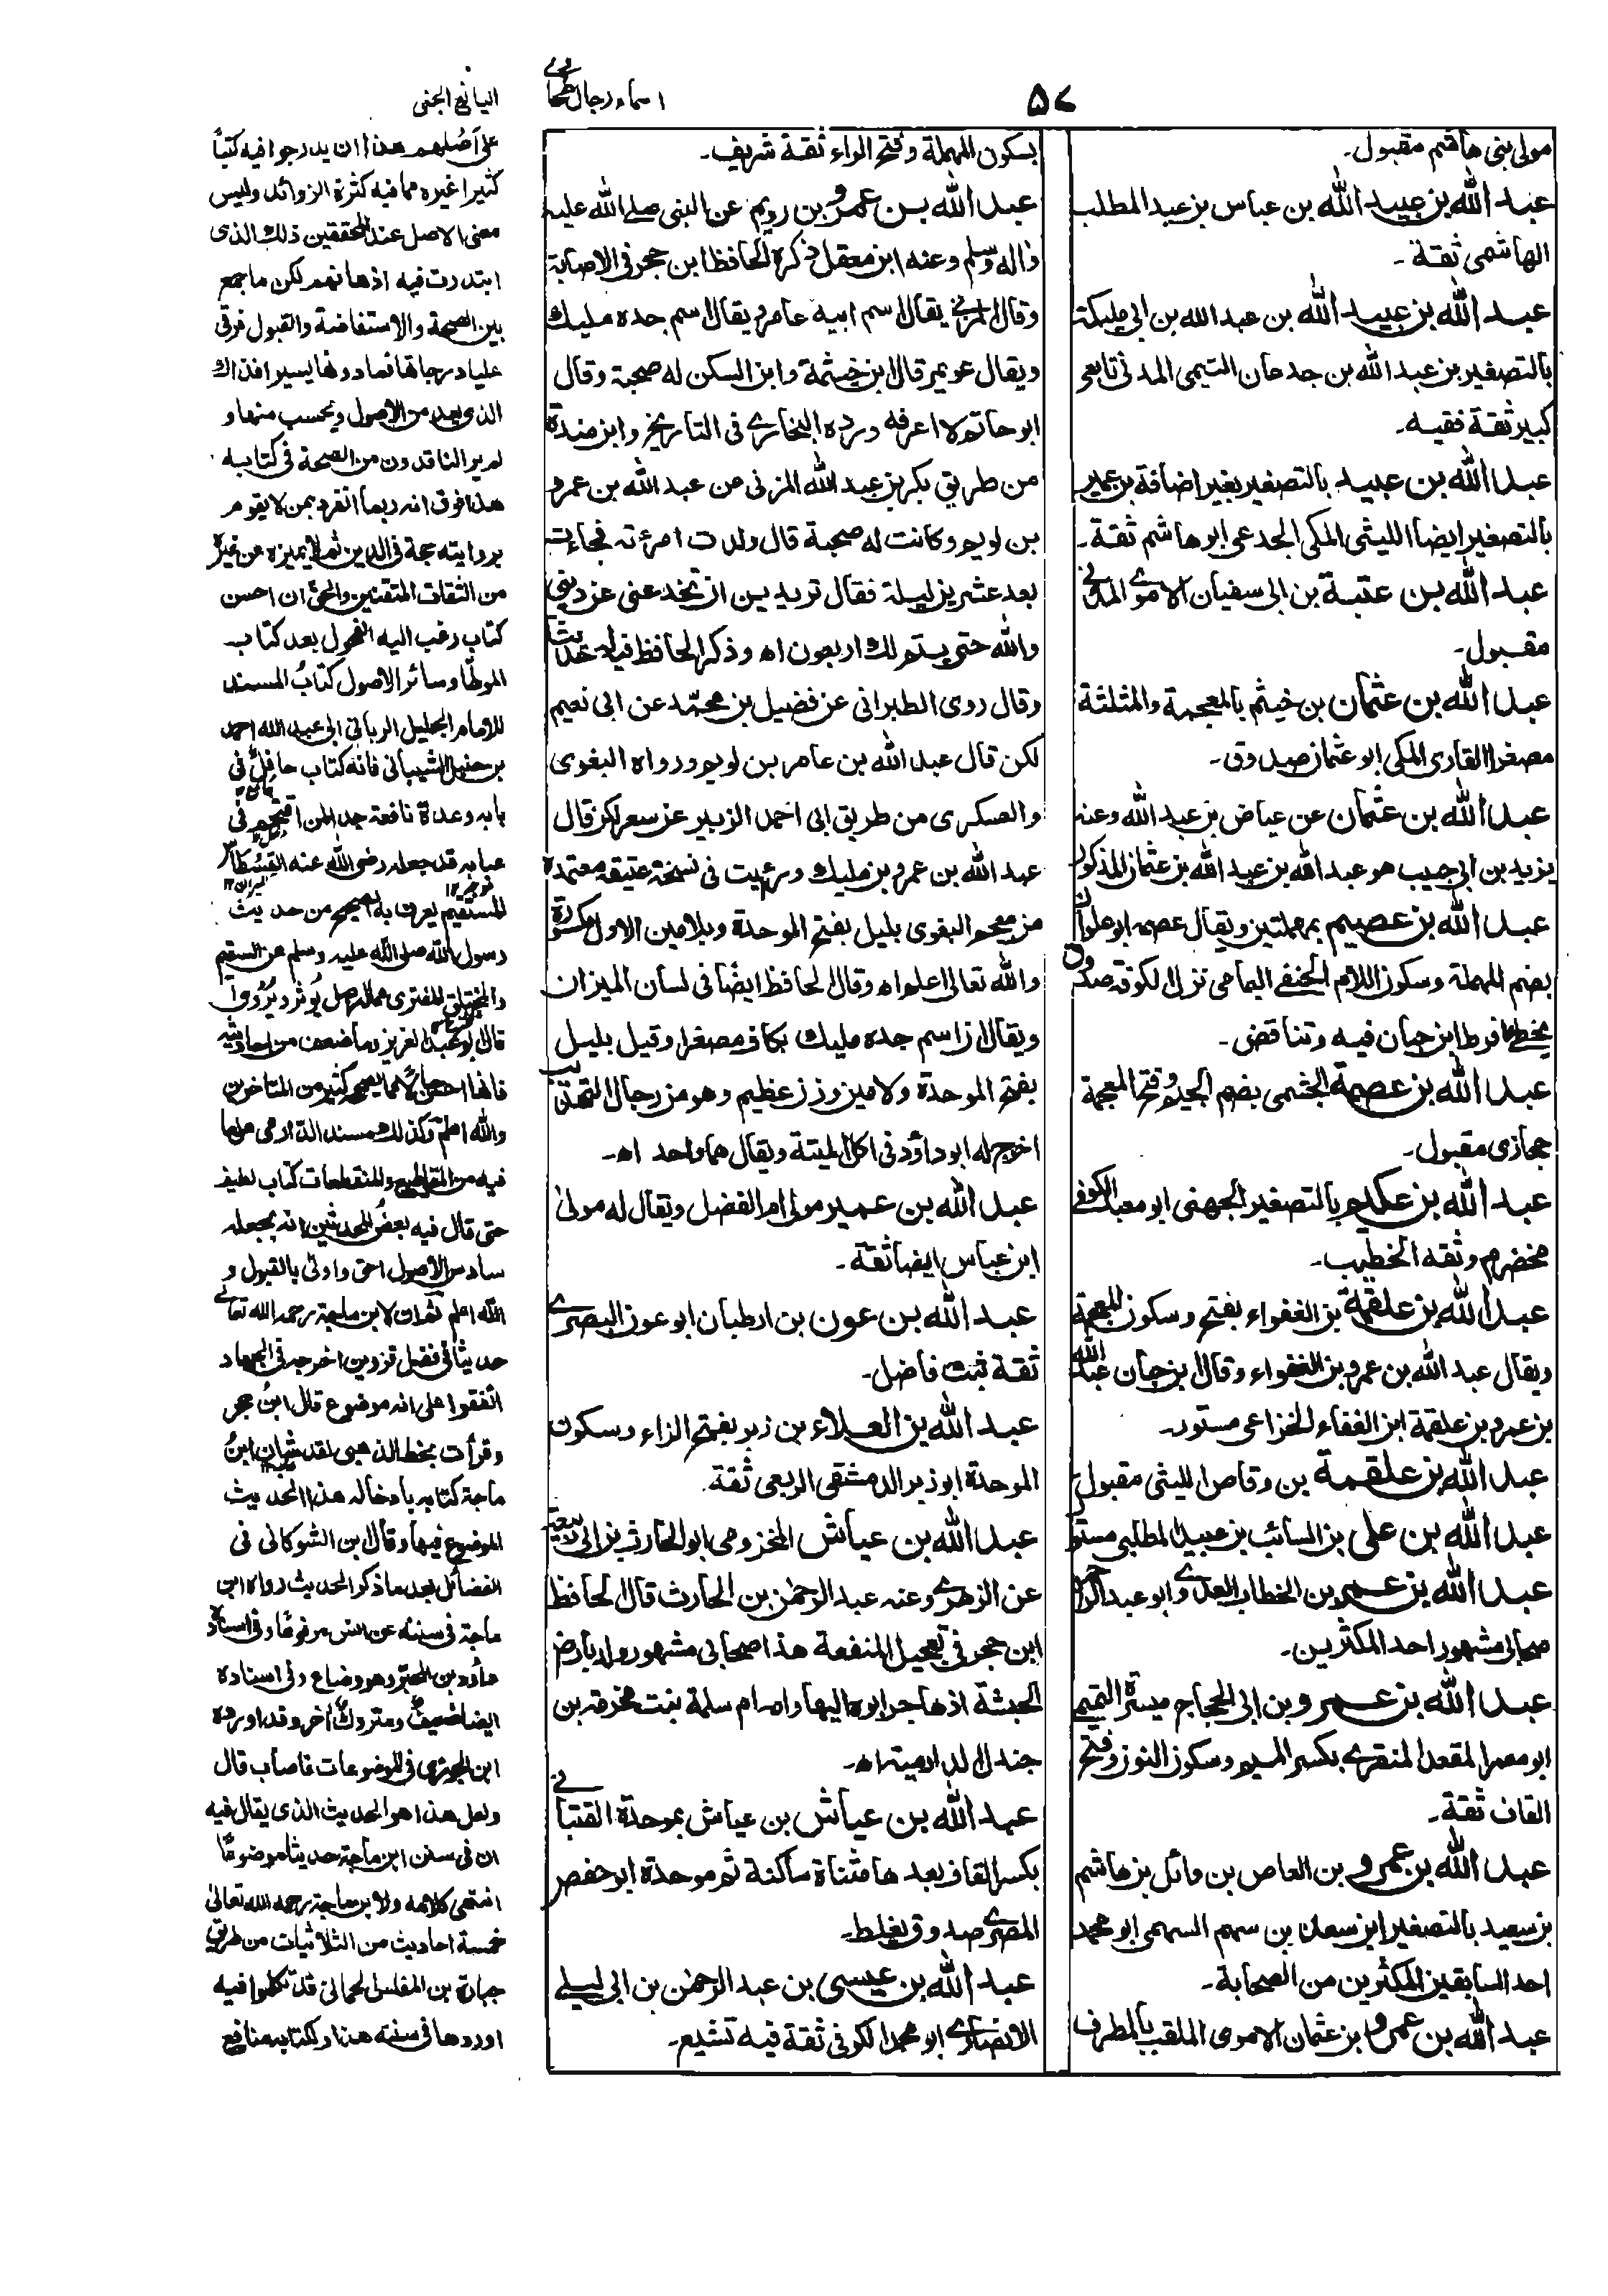 ٥٧
اسماء رجال طحاوي
اليانع الجنى
مولى بنى هاشم مقبول۔
عبد الله بن عبيد الله بن عباس بن عبد المطلب
الهاشمى ثقة۔
عبد الله بن عبيد الله بن عبد الله بن ابى مليكة
بالتصغير بن عبد الله بن جدعان التيمى المدنى تابعى
كبير ثقة فقيه۔
عبد الله بن عبيد بالتصغير بغير اضافة بن عمير
بالتصغير ايضا الليثى المكى الجدعى ابو هاشم ثقة۔
عبد الله بن عتبة بن ابى سفيان الاموے المدنے
مقبول۔
عبد الله بن عثمان بن خيثم بالمعجمة والمثلثة
مصغرا القارى المكى ابو عثمان صدوق۔
عبد الله بن عثمان عن عياض بن عبد الله وعنه
يزيد بن ابى حبيب هو عبد الله بن عبد الله بن عثمان المذكور
عبد الله بن عصيم بمهملتين ويقال عصمه ابو علوان
بضم المهملة وسكون اللام الحنفے اليمامى نزل الكوفة صدوق
يخطئ افرط ابن حبان فيه وتناقض۔
عبد الله بن عصيمة الجشمى بضم الجيم وفتح المعجمة
حجازى مقبول۔
عبد الله بن عكيم بالتصغير الجهنى ابو معبد الكوفے
مخضرم وثقه الخطيب۔
عبد الله بن علقمة بن الفغواء بفتح وسكون المعجمة
ويقال عبد الله بن عمرو بن الفغواء وقال ابن حبان عبد الله
بن عمرو بن علقمة ابن الفغاء الخزاعى مستور۔
عبد الله بن علقمة بن وقاص الليثى مقبول
عبد الله بن على بن السائب بن عبيد المطلبى مستور
عبد الله بن عمر بن الخطاب العدوے ابو عبد الرحمن
صحابى مشهور احد المكثرين۔
عبد الله بن عمرو بن ابى الحجاج ميسرة التميمے
ابو معمر المقعد المنقرے بكسر الميم وسكون النون وفتح
القاف ثقة۔
عبد الله بن عمرو بن العاص بن وائل بن هاشم
بن سعيد بالتصغير ابن سعد بن سهم السهمى ابو محمد
احد السابقين المكثرين من الصحابة۔
عبد الله بن عمرو بن عثمان الاموى الملقب بالمطرف
بسكون المهملة وفتح الراء ثقة شريف۔
عبد الله بن عمرو بن رويم عن النبى صلے الله عليه
واله وسلم وعنه ابن معقل ذكره الحافظ ابن حجر فى الاصابة
وقال المزنے يقال اسم ابيه عامر ويقال اسم جده مليك
ويقال عويمر قال ابن خيثمة وابن السكن له صحبة وقال
ابو حاتم لا اعرفه ورده البخارے فى التاريخ وابن مندة
من طريق بكر بن عبد الله المزنى من عبد الله بن عمرو
بن لويم وكانت له صحبة قال ولدت امرأته فجاءت
بعد عشرين ليلة فقال تريدين ان تخدعنى عن دينى
والله حتى يتم لك اربعون اه وذكر الحافظ فيه حديثا
وقال روى الطبرانى عن فضيل بن محمد عن ابى نعيم
لكن قال عبد الله بن عامر بن لويم ورواه البغوى
والعسكرى من طريق ابى احمد الزبير عن مسعر لكن قال
عبد الله بن عمرو بن مليك ورئيت فى نسخة عتيقة معتمدة
من معجم البغوى بليل بفتح الموحدة وبلامين الاول مكسورة
والله تعالى اعلم اه وقال الحافظ ايضا فى لسان الميزان
ويقال ان اسم جده مليك بكاف مصغرا وقيل بليل
بفتح الموحدة ولامين وزن عظيم وهو من رجال التهذيب
اخرج له ابو داؤد فى اكل الميتة ويقال هما واحد اه۔
عبد الله بن عمير مولى ام الفضل ويقال له مولى
ابن عباس ايضا ثقة۔
عبد الله بن عون بن ارطبان ابو عون البصرے
ثقة ثبت فاضل۔
عبد الله بن العلاء بن زبر بفتح الزاء وسكون
الموحدة ابو زبر الدمشقى الربعى ثقة۔
عبد الله بن عياش المخزومى ابو الحارث بن ابى ربيعة
عن الزهرے وعنه عبد الرحمٰن بن الحارث قال الحافظ
ابن حجر فى تعجيل المنفعة هذا صحابى مشهور ولد بارض
الحبشة اذ هاجر ابوه اليها وامه ام سلمة بنت مخرمة بن
جندل الدارمية اه۔
عبد الله بن عياش بن عياش بموحدة القتبانے
بكسر القاف بعدها مثناة ساكنة ثم موحدة ابو حفص
المصرے صدوق يغلط۔
عبد الله بن عيسى بن عبد الرحمٰن بن ابى ليلے
الانصارے ابو محمد الكوفى ثقة فيه تشيع۔
على اَصْلهم هذا ان يدرجوا فيه كتبًا
كثيرا غيره مما فيه كثرة الزوائد وليس
معنى الاصل عند المحققين ذلك الذى
ابتدرت فيه اذهانهم لكن ما جمع
بين الصحة والاستفاضة والقبول فرقى
عليا درجاتها فما دونها يسير افذاك
الذى يعد من الاصول ويحسب منها و
لم ير الناقدون من الصحة فى كتابه
هذا فوق انه ربما انفرد بمن لا يقوم
بروايته حجة فى الدين ثم لا يميزه عن غيره
من الثقات المتقنين والحق ان احسن
كتاب رغب اليه الفحول بعد كتاب
الموطّا وسائر الاصول كتابُ المسند
للامام الجليل الربانى ابى عبد الله احمد
بن حنبل الشيبانى فانه كتاب حافلٌ فى
بابه وعدة نافعة جدا لمن اقتحم فى
عبابه قد جعله رضى الله عنه القسطاس
المستقيم يعرف به الصحيح من حديث
رسول الله صلى الله عليه وسلم من السقيم
قال ابو عبد العزيز وما ضعف من احاديثه
فانها احسن حالا مما يصححه كثير من المتاخرين
والله اعلم وكذلك مسند الدارمى على ما
فيه من المقاطيع والمنقطعات كتاب لطيف
حتى قال فيه بعضُ المحدثين انه بجعله
سادس الأصول احق واولى بالقبول و
الله اعلم ثم ان لابن ماجة رحمه الله تعالے
حديثا فى فضل قزوين اخرجه فى الجهاد
اتفقوا على انه موضوع قال ابنُ حجر
وقرأت بخط الذهبى لقد شان ابنُ
ماجة كتابه بادخاله هذا الحديث
الموضوع فيها وقال ابن الشوكانى فى
الفضائل بعد ما ذكر الحديث رواه ابن
ماجة فى سننه عن انس مرفوعًا وفى اسناده
داؤد بن المحبّر وهو وضاع وفى اسناده
ايضا ضعيفٌ ومتروكٌ اٰخر وقد اورده
ابن الجوزى فى الموضوعات فاصاب قال
ولعل هذا هو الحديث الذى يقال فيه
ان فى سنن ابن ماجة حديثا موضوعًا
انتهى كلامه ولابن ماجة رحمه الله تعالىٰ
خمسة احاديث من الثلاثيات من طريق
جبارة بن المغلس الحمانى قد تكلموا فيه
اوردها فى سننه هذا ولكتابه منافع